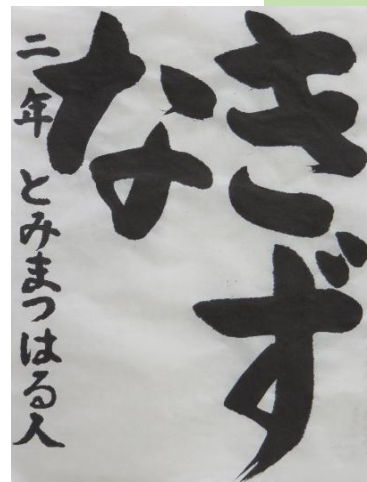 きず
な
二年 とみまつはる人